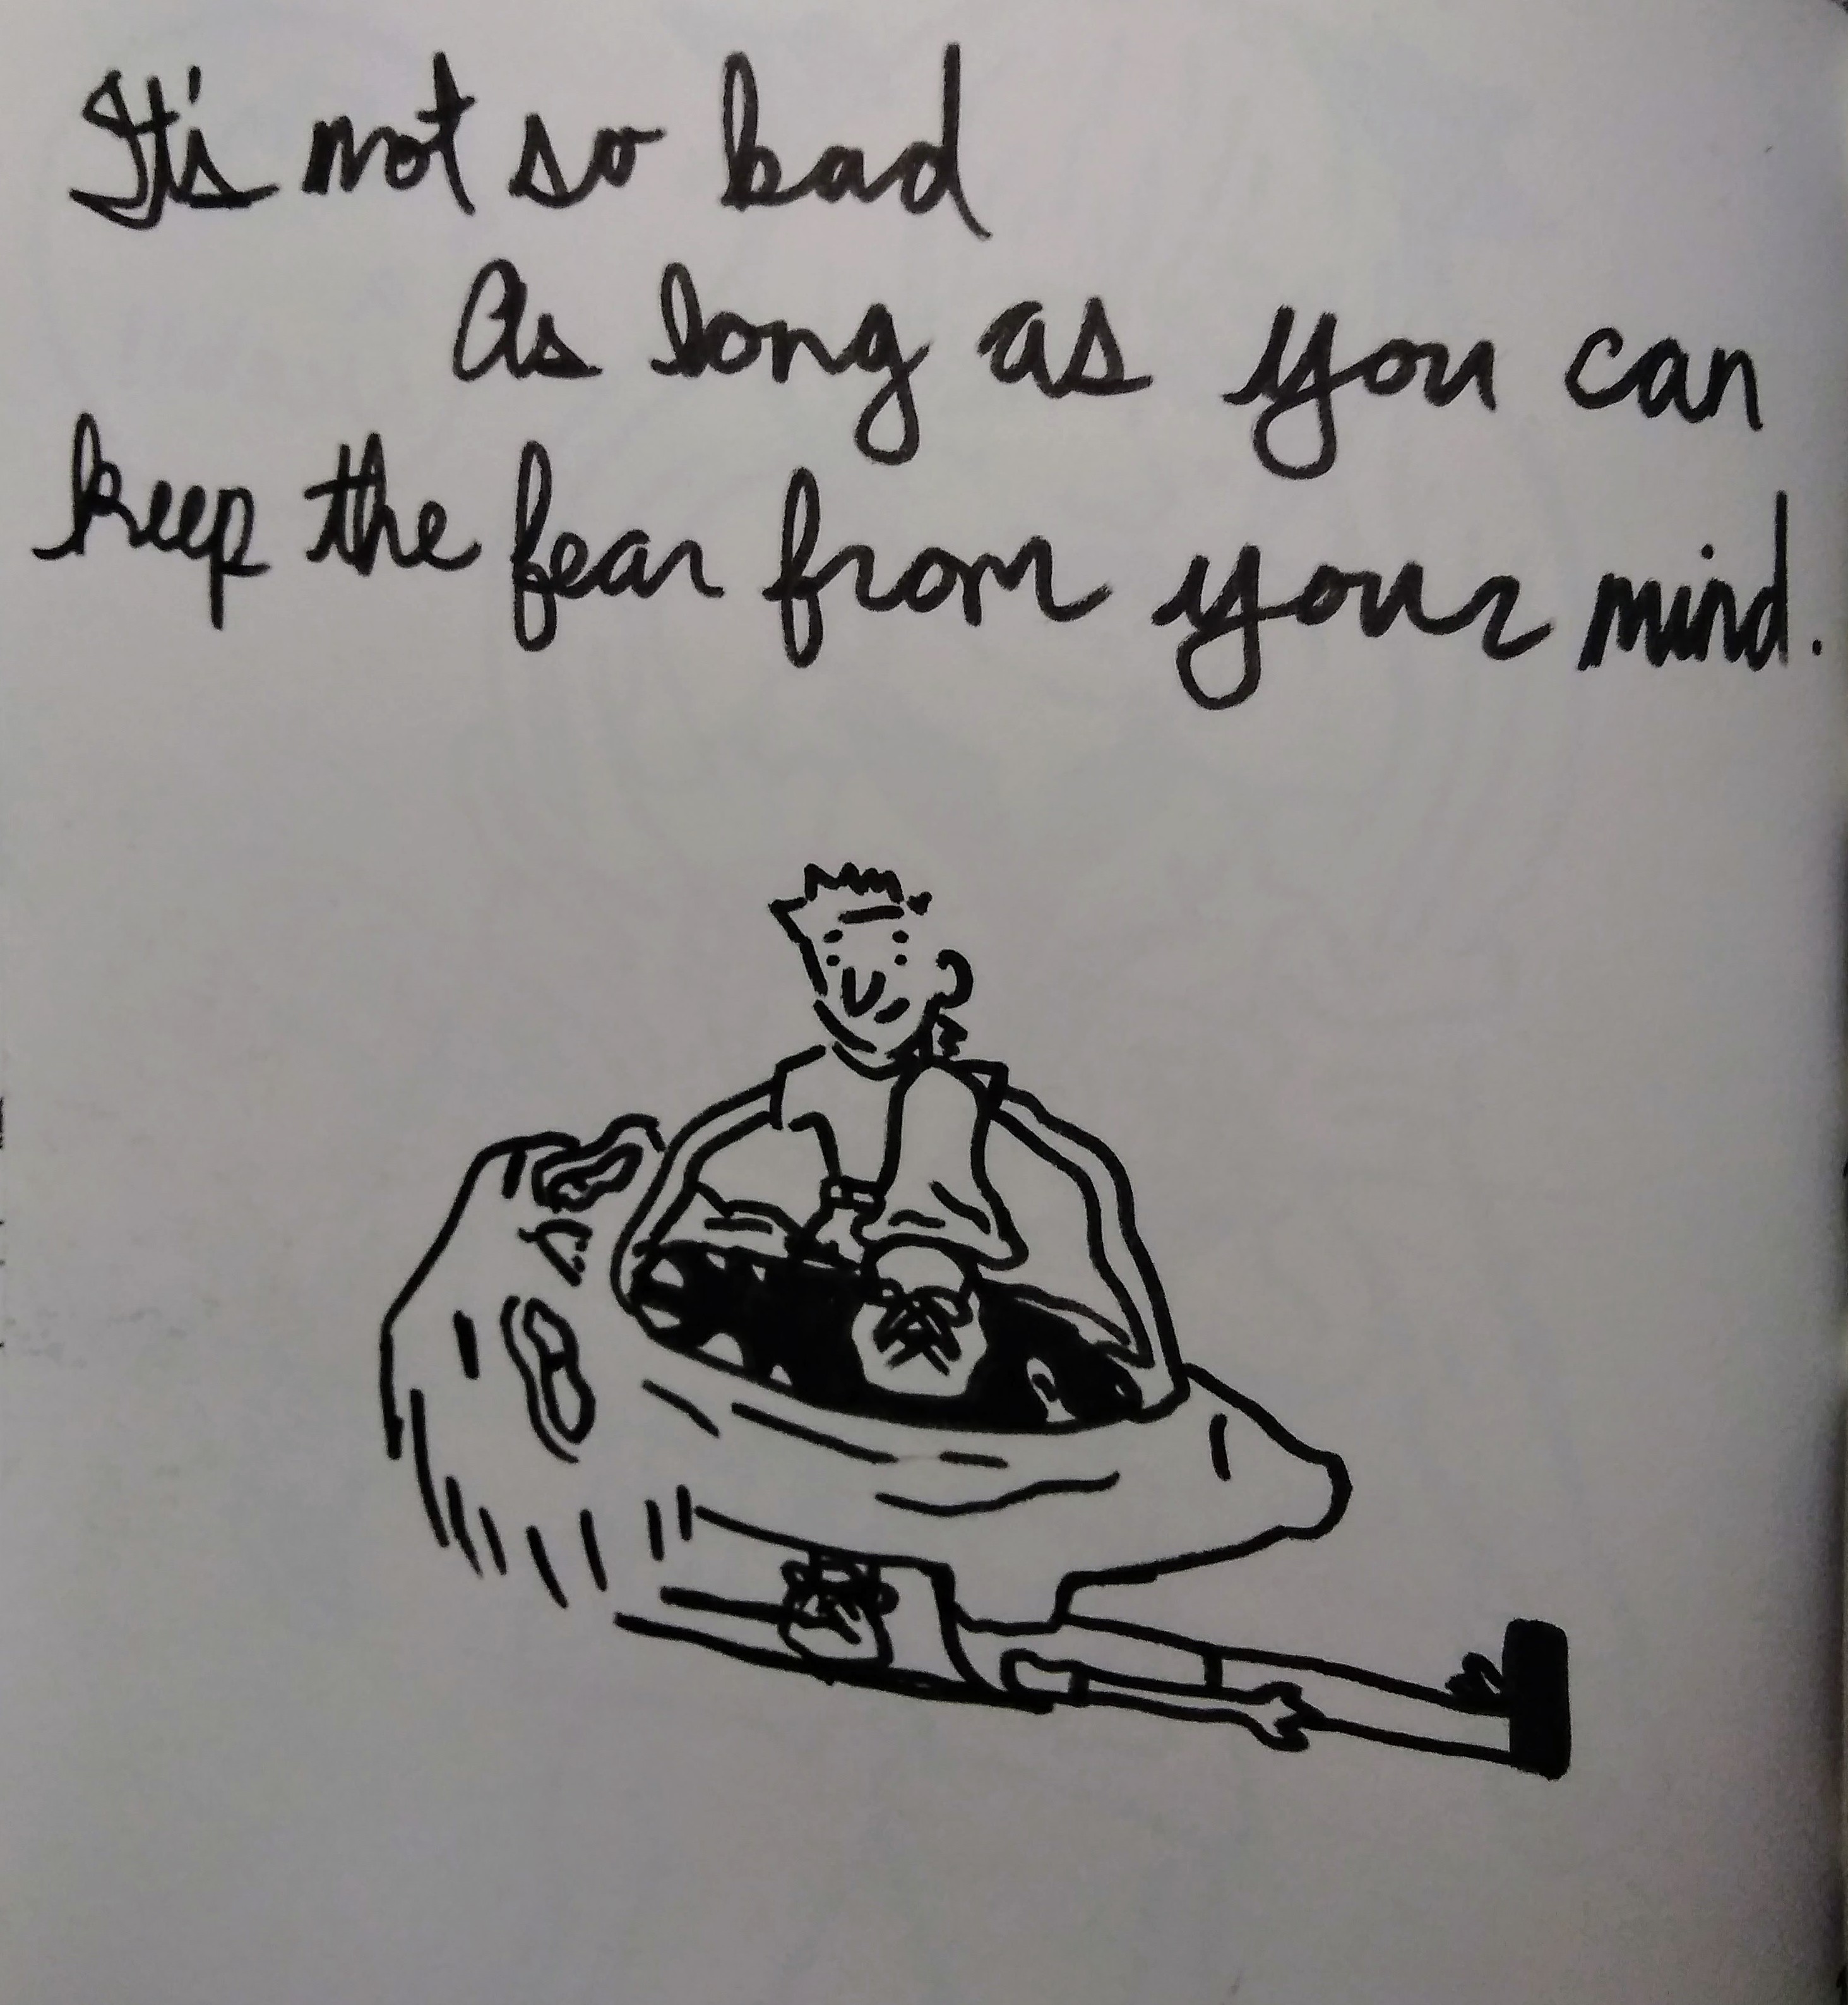 It's not so bad
As long as you can
keep the fear from your mind.